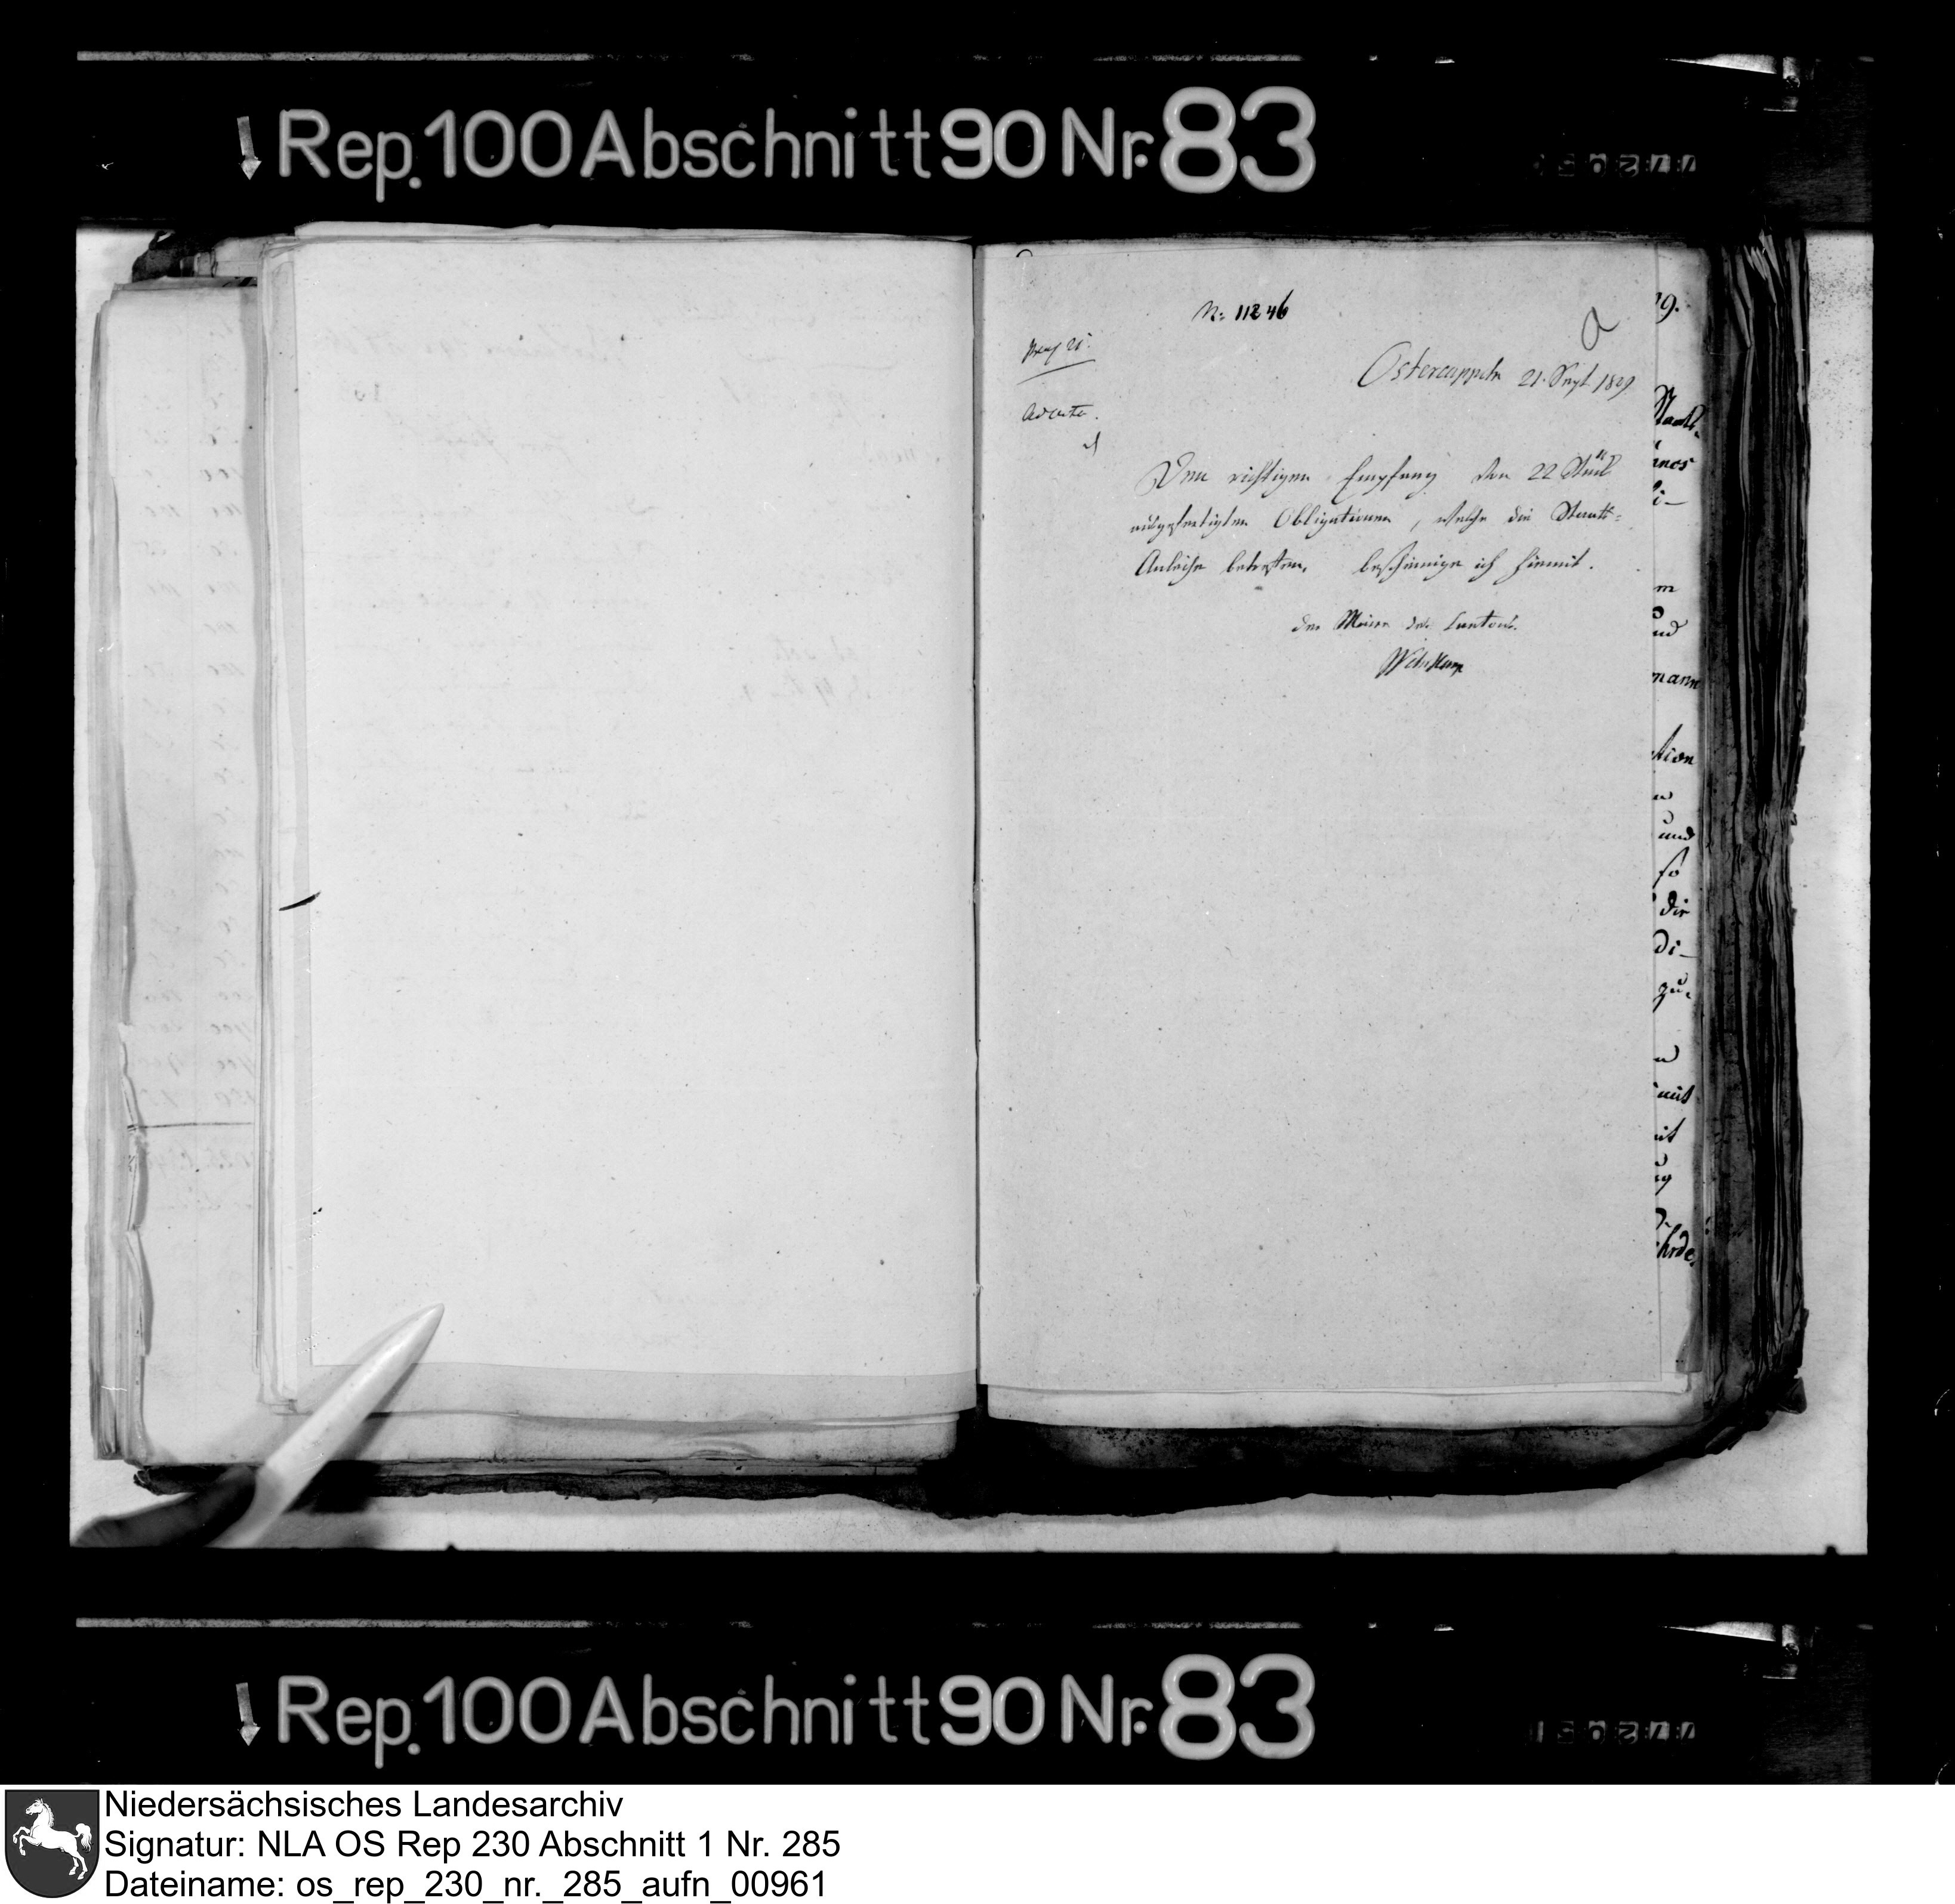 Rep. 100 Abschnitt 90 Nr. 83
N: 11246
a
praes 21
Ostercappeln 21. Sept. 1809
ad acta.
Den richtigen Empfang der 22 Stück
ausgefertigten Obligationen, welche die Staats-
Anleihe betreffen, bescheinige ich hiemit.
der Maire des Cantons.
9.
und
mann
und
so
die
di-
zu
mit
Rep. 100 Abschnitt 90 Nr. 83
Niedersächsisches Landesarchiv
Signatur: NLA OS Rep 230 Abschnitt 1 Nr. 285
Dateiname: os_rep_230_nr._285_aufn_00961